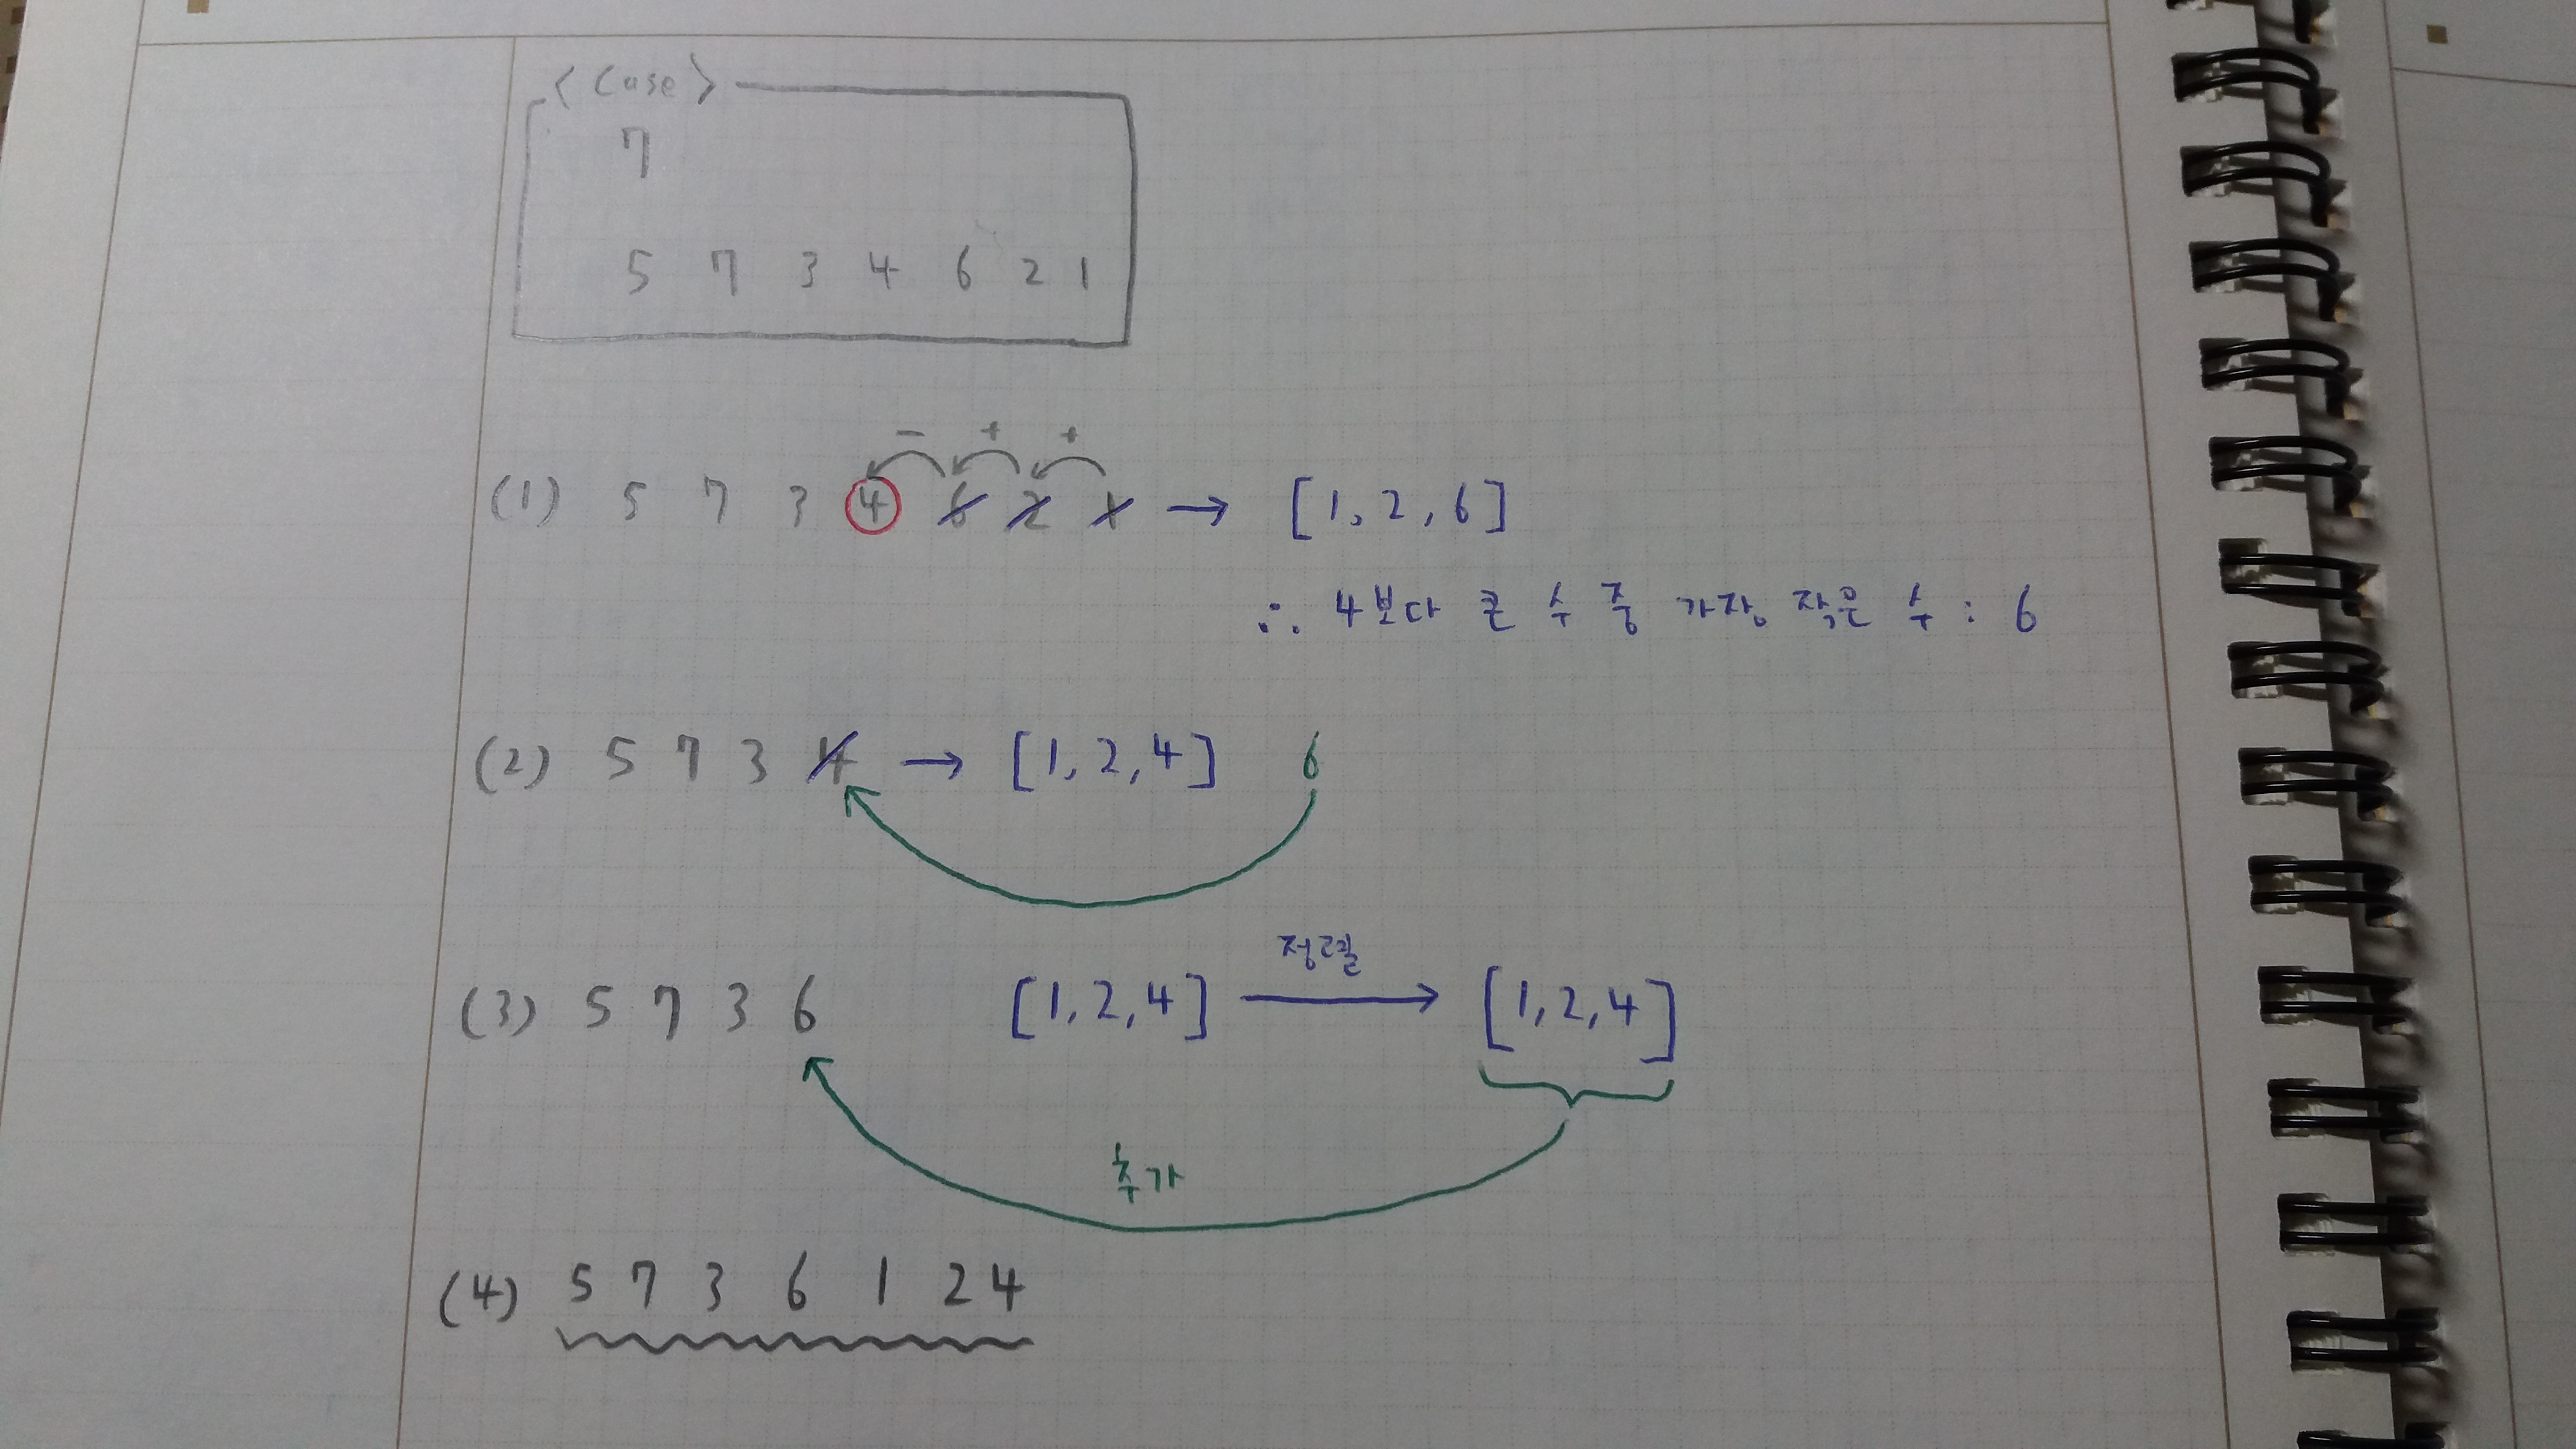 < Case >
7
5 7 3 4 6 2 1
- + +
(1) 5 7 3 4 6 2 1 → [1, 2, 6]
∴ 4보다 큰 수 중 가장 작은 수 : 6
(2) 5 7 3 4 → [1, 2, 4] 6
정렬
(3) 5 7 3 6 [1, 2, 4] → [1, 2, 4]
추가
(4) 5 7 3 6 1 2 4